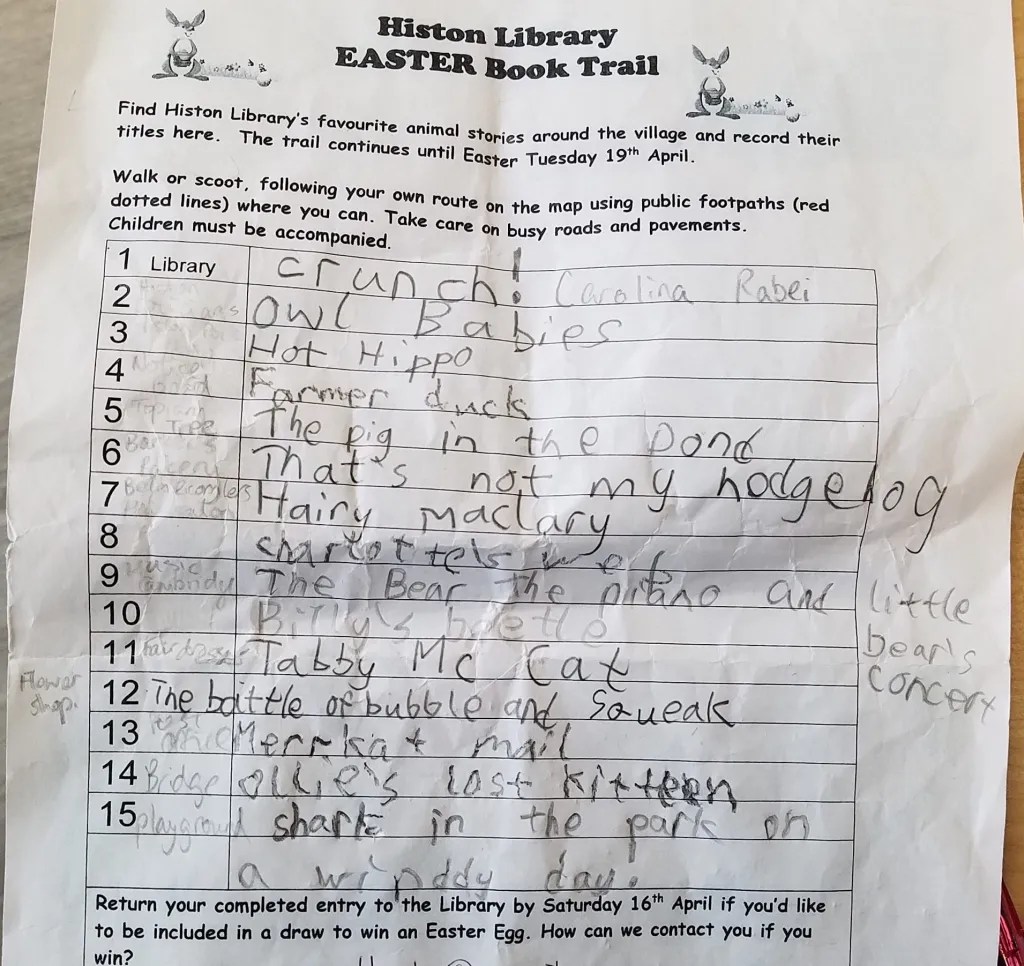 Histon Library
EASTER Book Trail
Find Histon Library's favourite animal stories around the village and record their
titles here. The trail continues until Easter Tuesday 19th April.
Walk or scoot, following your own route on the map using public footpaths (red
dotted lines) where you can. Take care on busy roads and pavements.
Children must be accompanied.
1 Library crunch! Carolina Rabei
2 Owl Babies
3 Hot Hippo
4 Farmer duck
5 Tree The pig in the Pond
6 That's not my hodgehog
7 Hairy maclary
8
9 Music The Bear The pitano and little
bear's
concert
10 Billy's beetle
11 Tabby Mc Cat
Flower
shop.
12 The battle of bubble and Squeak
13 Merrkat mail
14 Bridge ollie's lost kitteen
15 playground shark in the park on
a winddy day!
Return your completed entry to the Library by Saturday 16th April if you'd like
to be included in a draw to win an Easter Egg. How can we contact you if you
win?